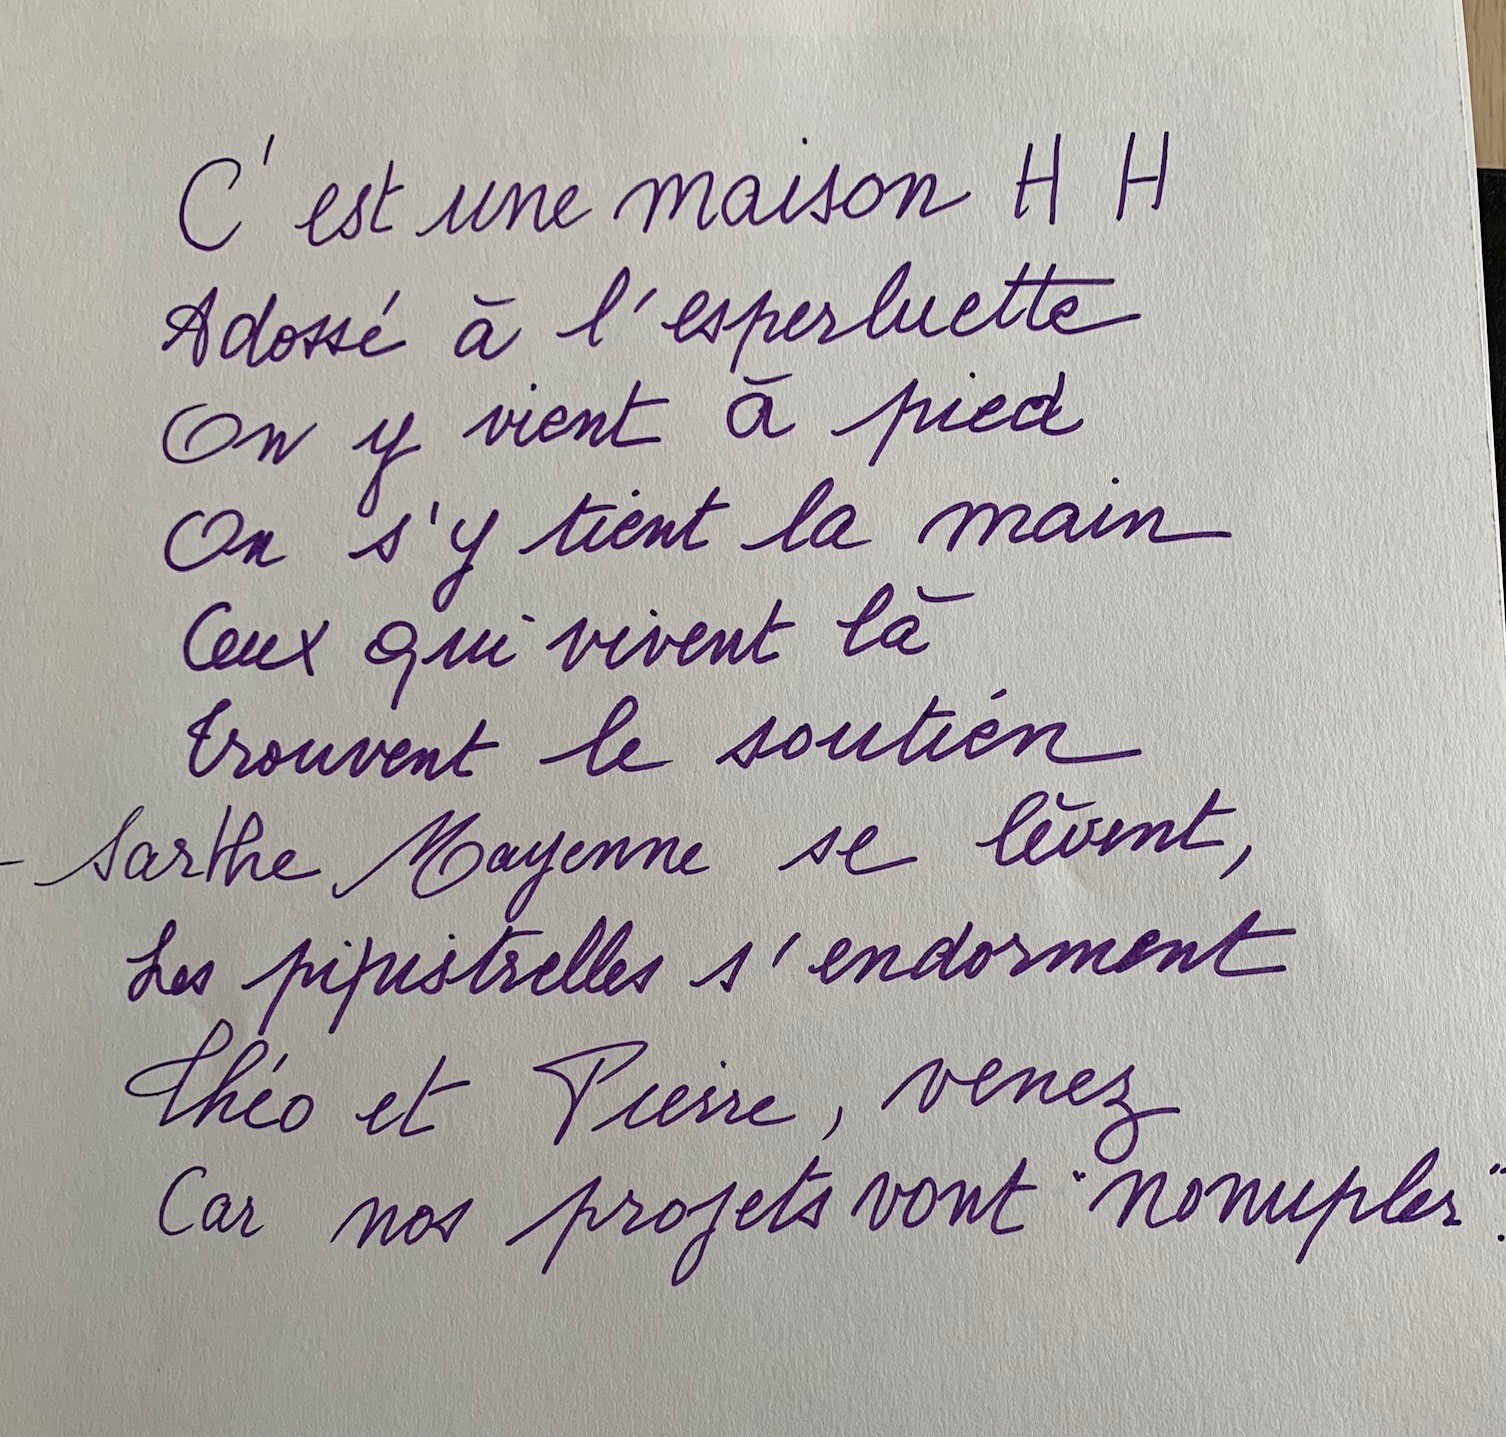 C'est une maison H H
Adossé à l'esperluette
On y vient à pied
On s'y tient la main
Ceux qui vivent là
Trouvent le soutien
- Sarthe Mayenne se lèvent,
Les pipistrelles s'endorment
Théo et Pierre, venez
Car nos projets vont "nonupler".